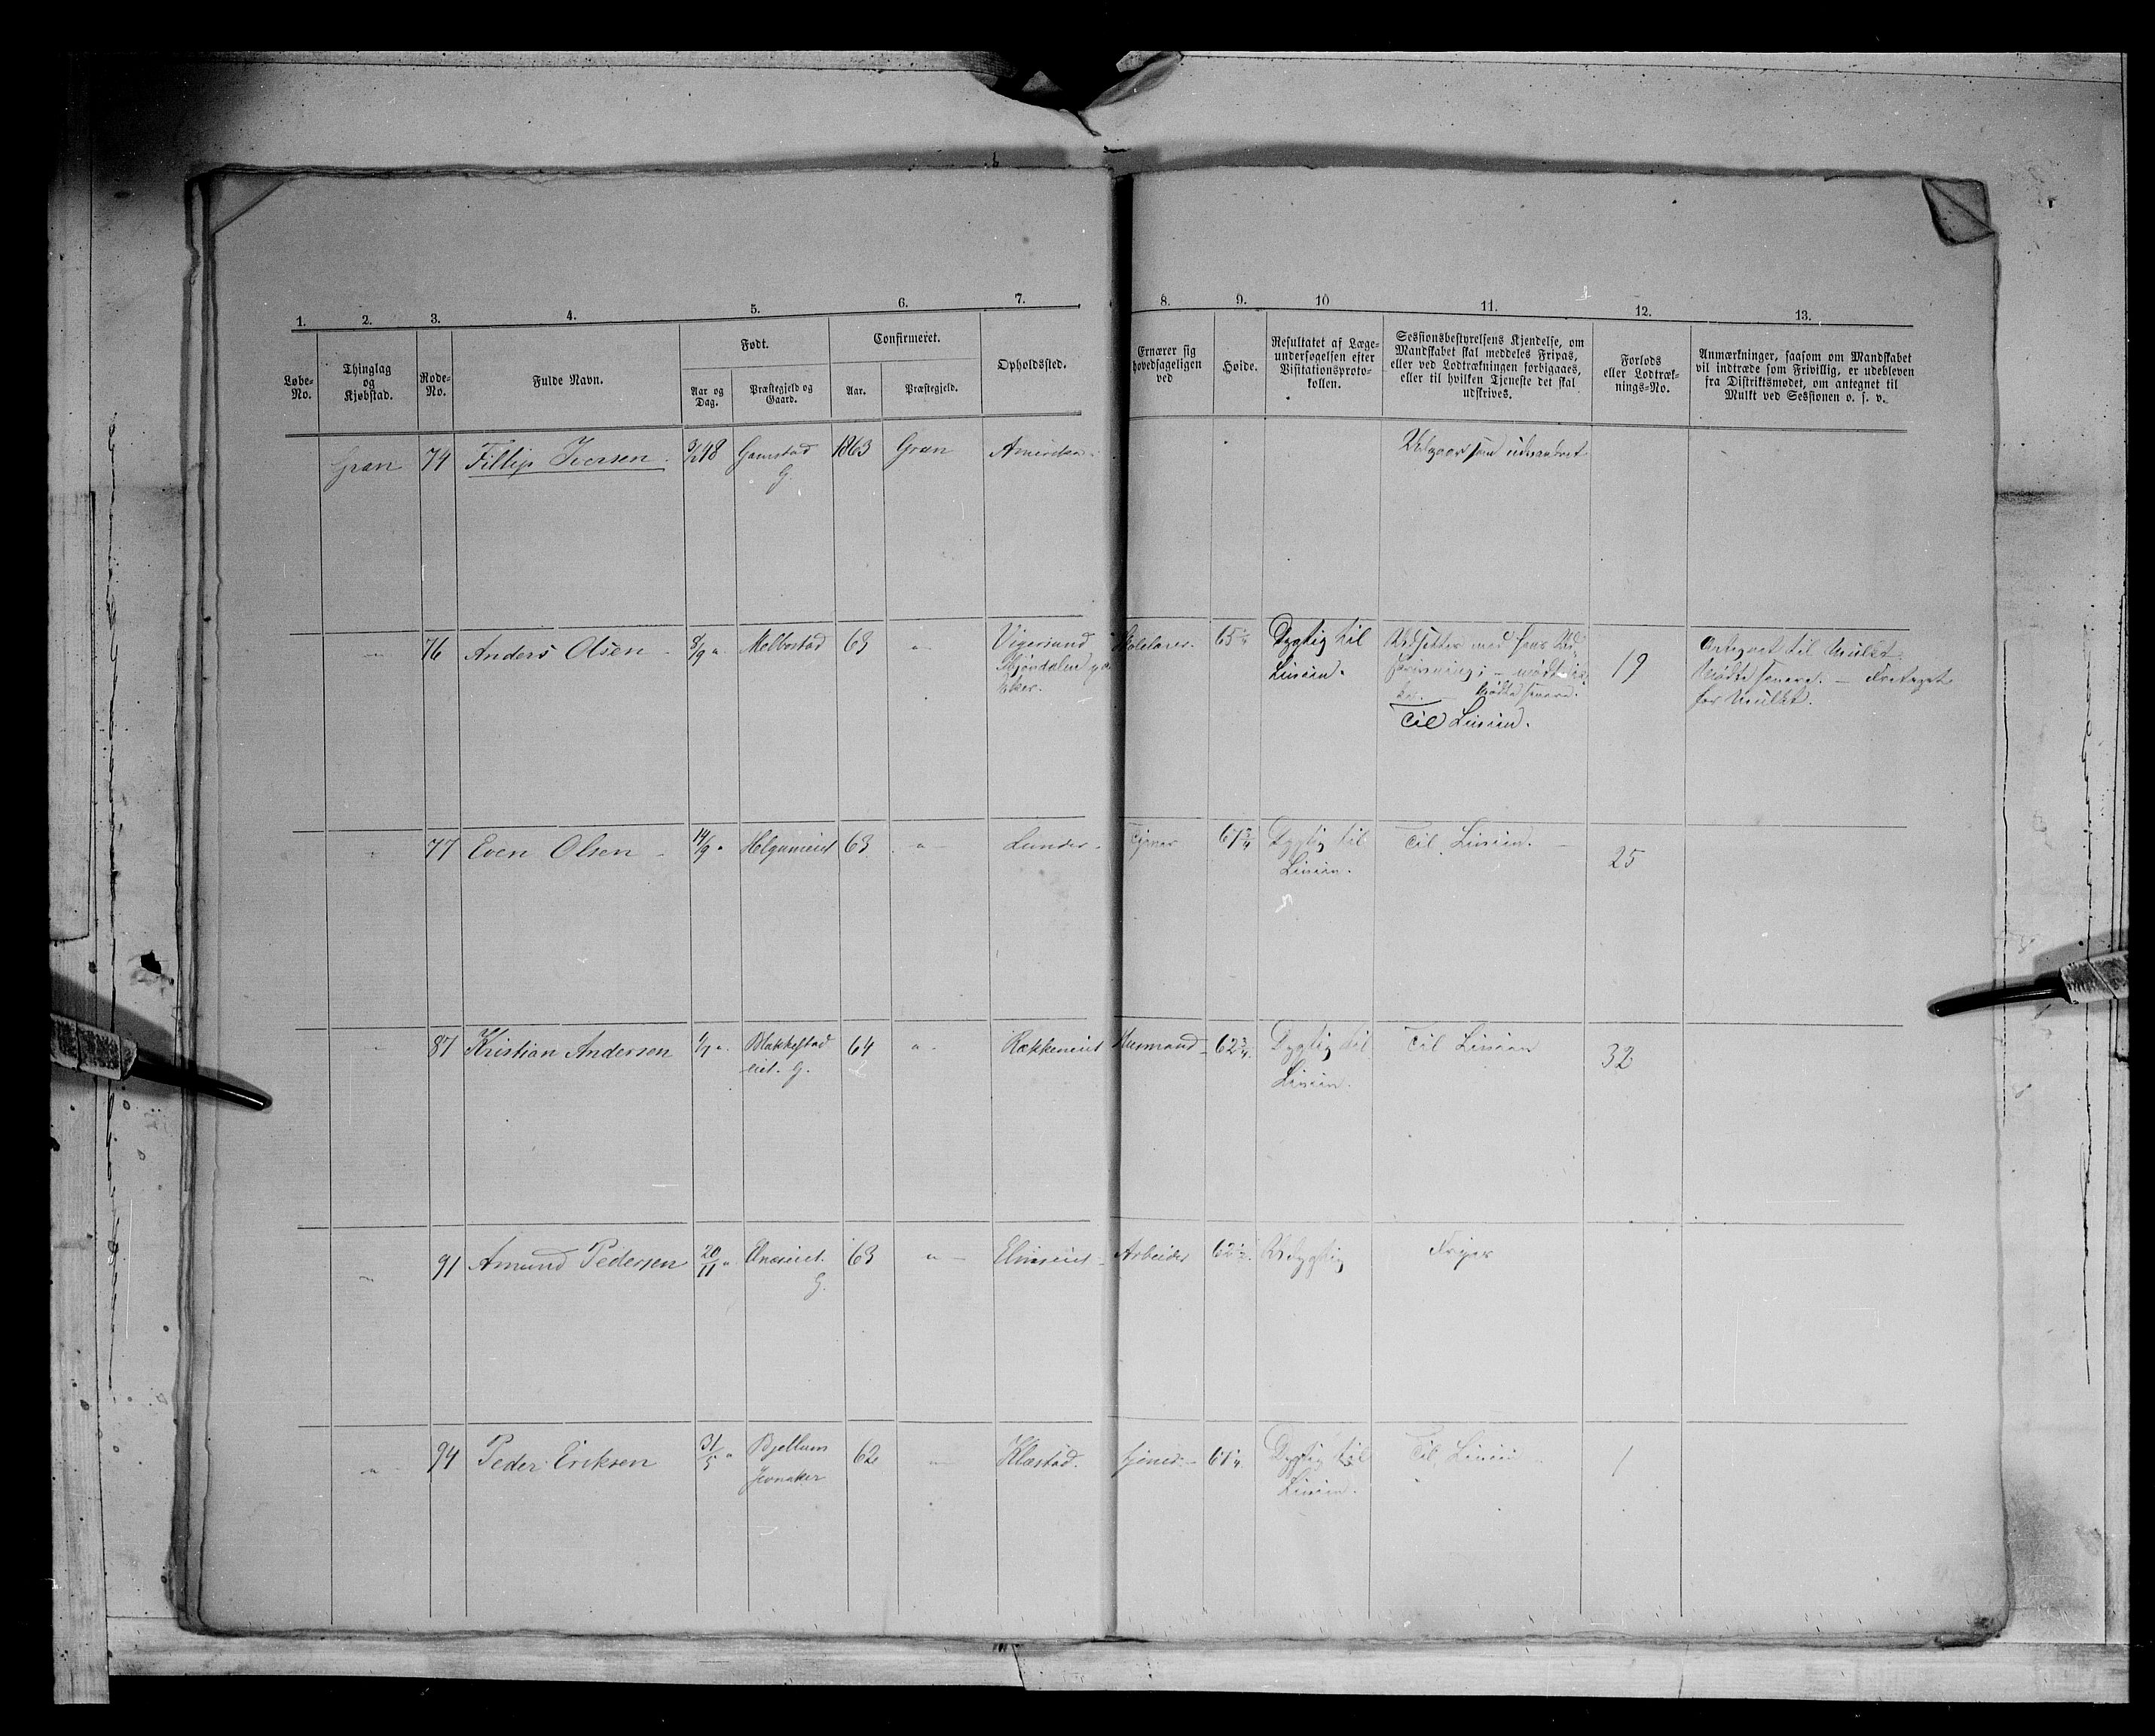 1. 2. 3. 4. 5. 6. 7. 8. 9. 10 11. 12. 13.
Løbe-
No.
Thinglag
og
Kjøbstad.
Rode-
No.
Fulde Navn.
Født.
Aar og
Dag.
Præstegjeld og
Gaard.
Confirmeret.
Aar.
Præstegjeld.
Opholdssted.
Ernærer sig
hovedsageligen
ved
Høide.
Resultatet af Læge-
undersøgelsen efter
Visitationsproto-
kollen.
Sessionsbestyrelsens Kjendelse, om
Mandskabet skal meddeles Fripas,
eller ved Lodtrækningen forbigaaes,
eller til hvilken Tjeneste det skal
udskrives.
Forlods
eller Lodtræk-
nings-No.
Anmærkninger, saasom om Mandskabet
vil indtræde som Frivillig, er udebleven
fra Distriktsmødet, om antegnet til
Mulkt ved Sessionen o. s. v.
Gran 74 Fillip Iversen 48 Gamstad 1863 Gran Amerika Udgaar som udvandret
G.
" 76 Anders Olsen 8/9 " Melbostad 63 " Vigersund 65 1/4 Dygtig til
Linien.
19 Antegnet til Mulkt.
Mødte senere. — Fritaget
for Mulkt.
Mødte senere.
Til Linien.
" 77 Even Olsen 14/9 " Helgumeiet 63 " Lunder Tjener 67 3/4 Dygtig til Til Linien. 25
Linien.
" 87 Kristian Andersen " Blakkestad 64 " Rækkeneiet Husmand 62 3/4 Dygtig til Til Linien 32
eiet. G. Linien.
" 91 Amund Pedersen 20/11 " 63 " Arbeider 62 1/2 Udygtig
G.
" 94 Peder Eriksen 31/5 " Bjellum 62 " Klæstad. tjener 67 1/4 Dygtig til Til Linien 1
Jevnaker Linien.